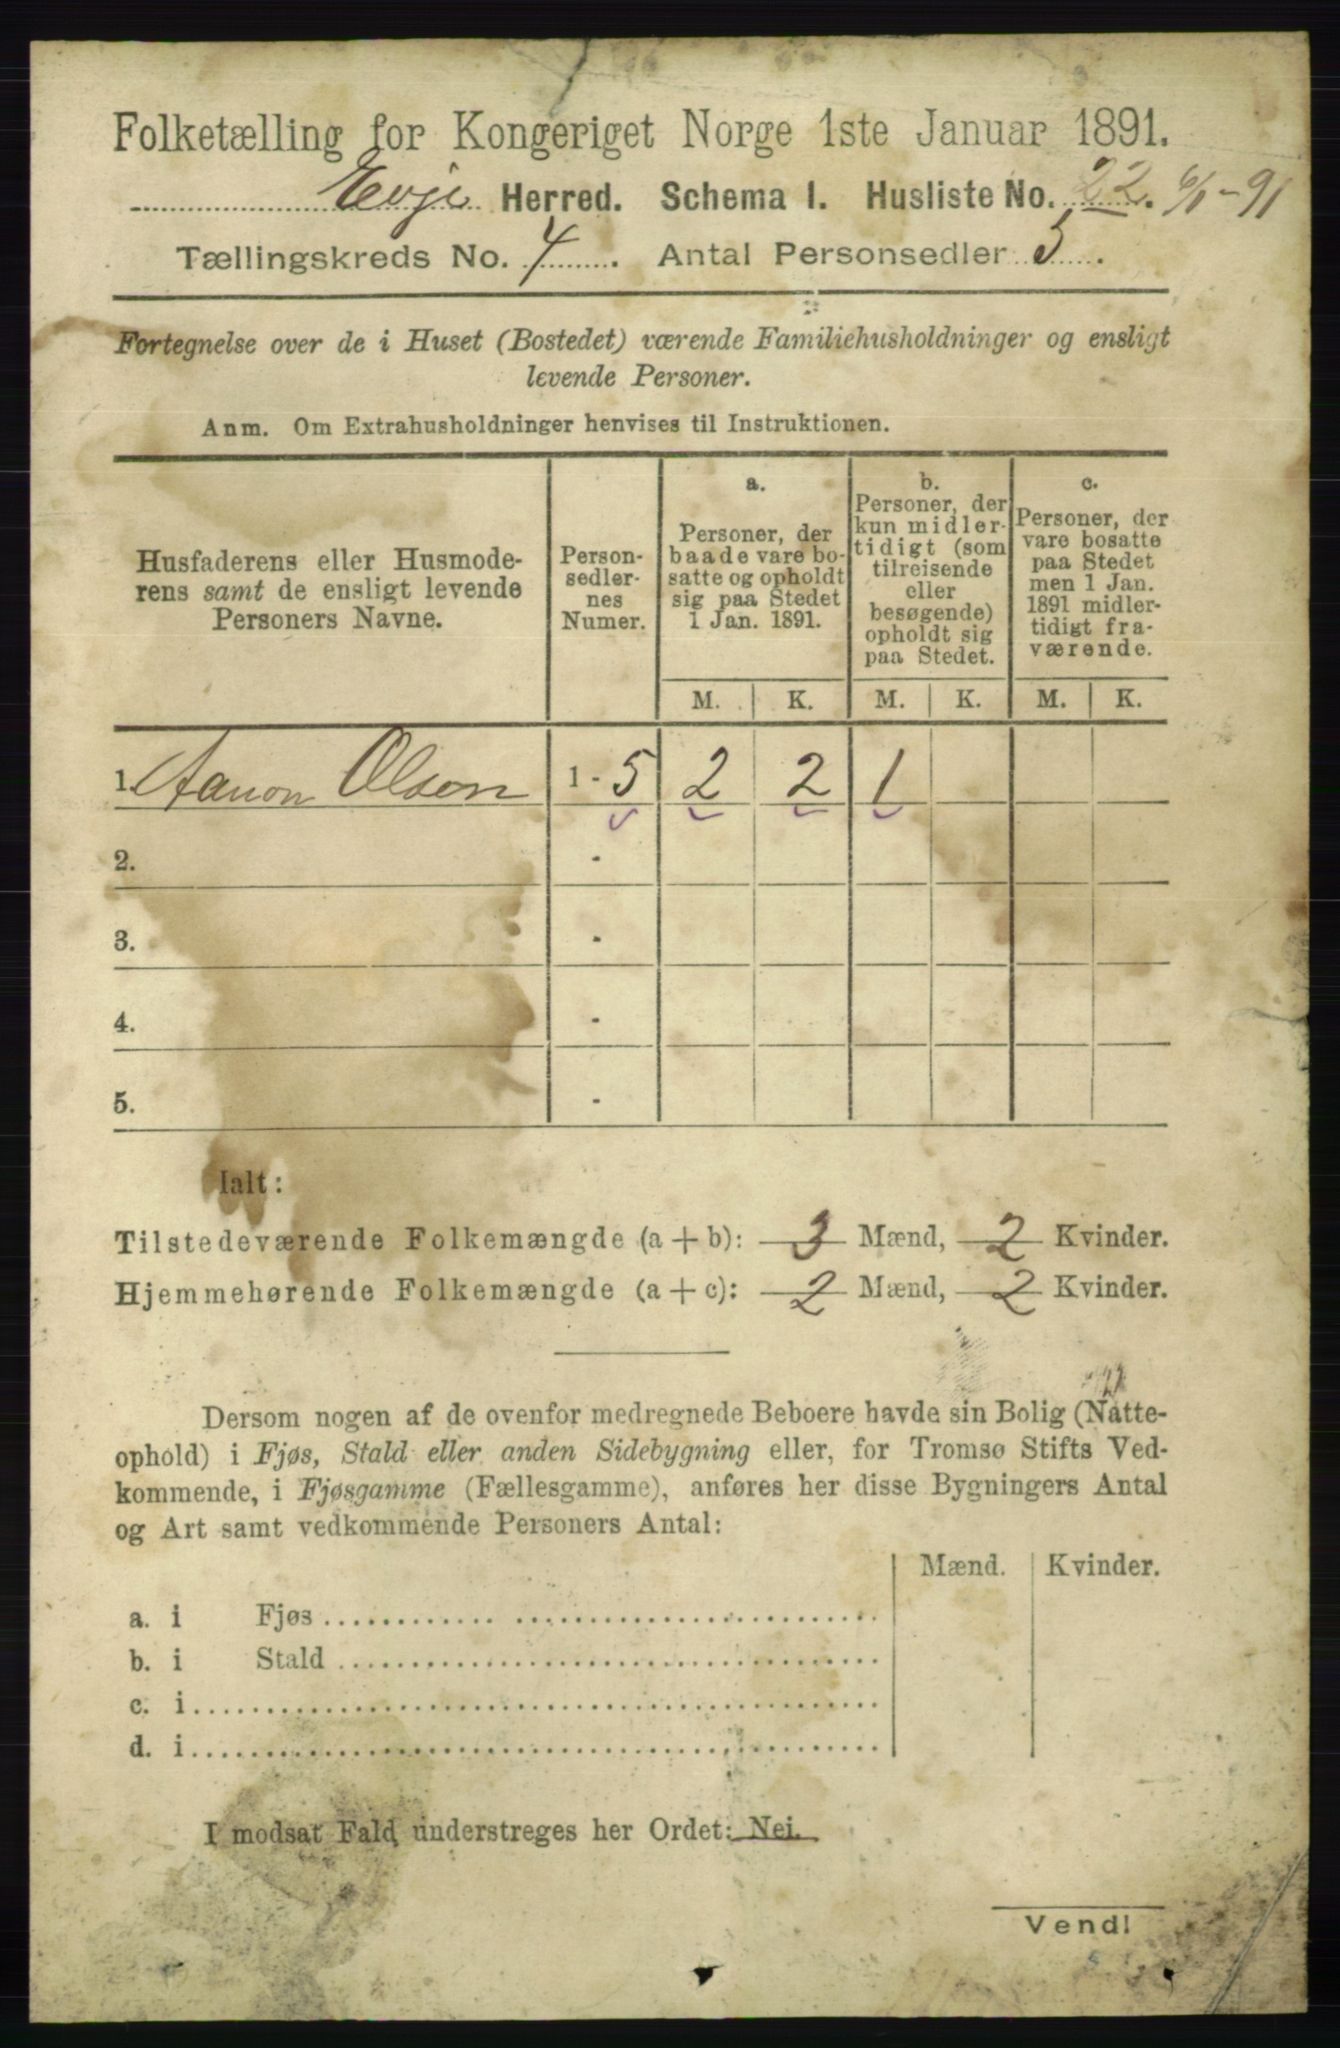 Folketælling for Kongeriget Norge 1ste Januar 1891.
Evje Herred. Schema I. Husliste No. 22. 6/1-91
Tællingskreds No. 4. Antal Personsedler 5.
Fortegnelse over de i Huset (Bostedet) værende Familiehusholdninger og ensligt
levende Personer.
Anm. Om Extrahusholdninger henvises til Instruktionen.
Husfaderens eller Husmode-
rens samt de ensligt levende
Personers Navne.
Person-
sedler-
nes
Numer.
a.
Personer, der
baade vare bo-
satte og opholdt
sig paa Stedet
1 Jan. 1891.
b.
Personer, der
kun midler-
tidigt (som
tilreisende
eller
besøgende)
opholdt sig
paa Stedet.
c.
Personer, der
vare bosatte
paa Stedet
men 1 Jan.
1891 midler-
tidigt fra-
værende.
M. K. M. K. M. K.
1. Aanon Olsen 1 - 5 2 2 1
2. -
3. -
4. -
5. -
Ialt:
Tilstedeværende Folkemængde (a + b): 3 Mænd, 2 Kvinder.
Hjemmehørende Folkemængde (a + c): 2 Mænd, 2 Kvinder.
Dersom nogen af de ovenfor medregnede Beboere havde sin Bolig (Natte-
ophold) i Fjøs, Stald eller anden Sidebygning eller, for Tromsø Stifts Ved-
kommende, i Fjøsgamme (Fællesgamme), anføres her disse Bygningers Antal
og Art samt vedkommende Personers Antal:
Mænd. Kvinder.
a. i Fjøs
b. i Stald
c. i
d. i
I modsat Fald understreges her Ordet: Nei.
Vend!